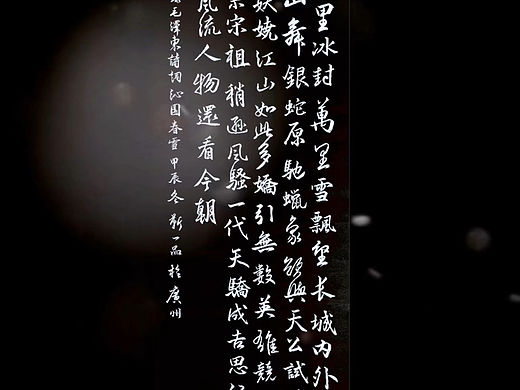 里冰封萬里雪飄望长城内外
山舞銀蛇原馳蠟象欲與天公試
妖嬈江山如此多嬌引無數英雄競
宗宋祖稍遜风騷一代天驕成吉思
风流人物還看今朝
毛澤東詩詞沁园春雪甲辰冬靳一品於廣州